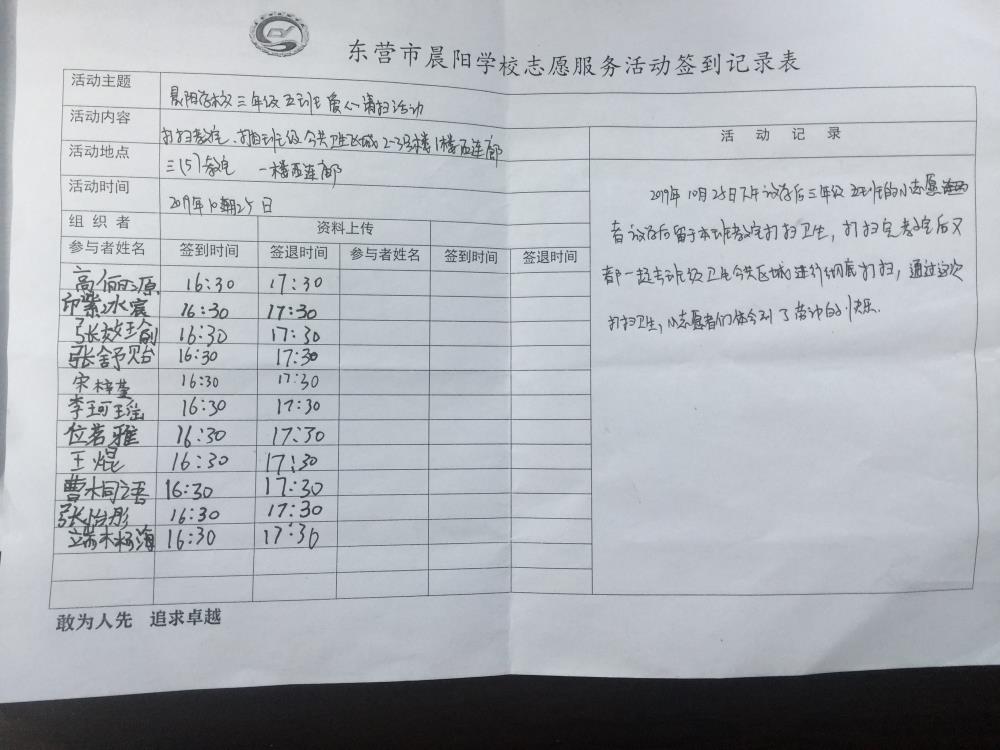 东营市晨阳学校志愿服务活动签到记录表
活动主题 晨阳学校三年级五班爱心清扫活动
活动内容 打扫教室、打扫班级公共卫生区域2-3号楼1楼西连廊
活动地点 三(5)教室 一楼西连廊
活动时间 2019年10月25日
组织者 资料上传
参与者姓名 签到时间 签退时间 参与者姓名 签到时间 签退时间
16:30 17:30
16:30 17:30
16:30 17:30
张舒贻 16:30 17:30
宋梓莹 16:30 17:30
李珂瑶 16:30 17:30
位若雅 16:30 17:30
王焜 16:30 17:30
曹桐语 16:30 17:30
张怡彤 16:30 17:30
端木杨海 16:30 17:30
活动记录
2019年10月25日下午放学后三年级五班的小志愿
者放学后留于本班教室打扫卫生,打扫完教室后又
都一起去班级卫生公共区域进行彻底打扫,通过这次
打扫卫生,小志愿者们体会到了劳动的快乐.
敢为人先 追求卓越